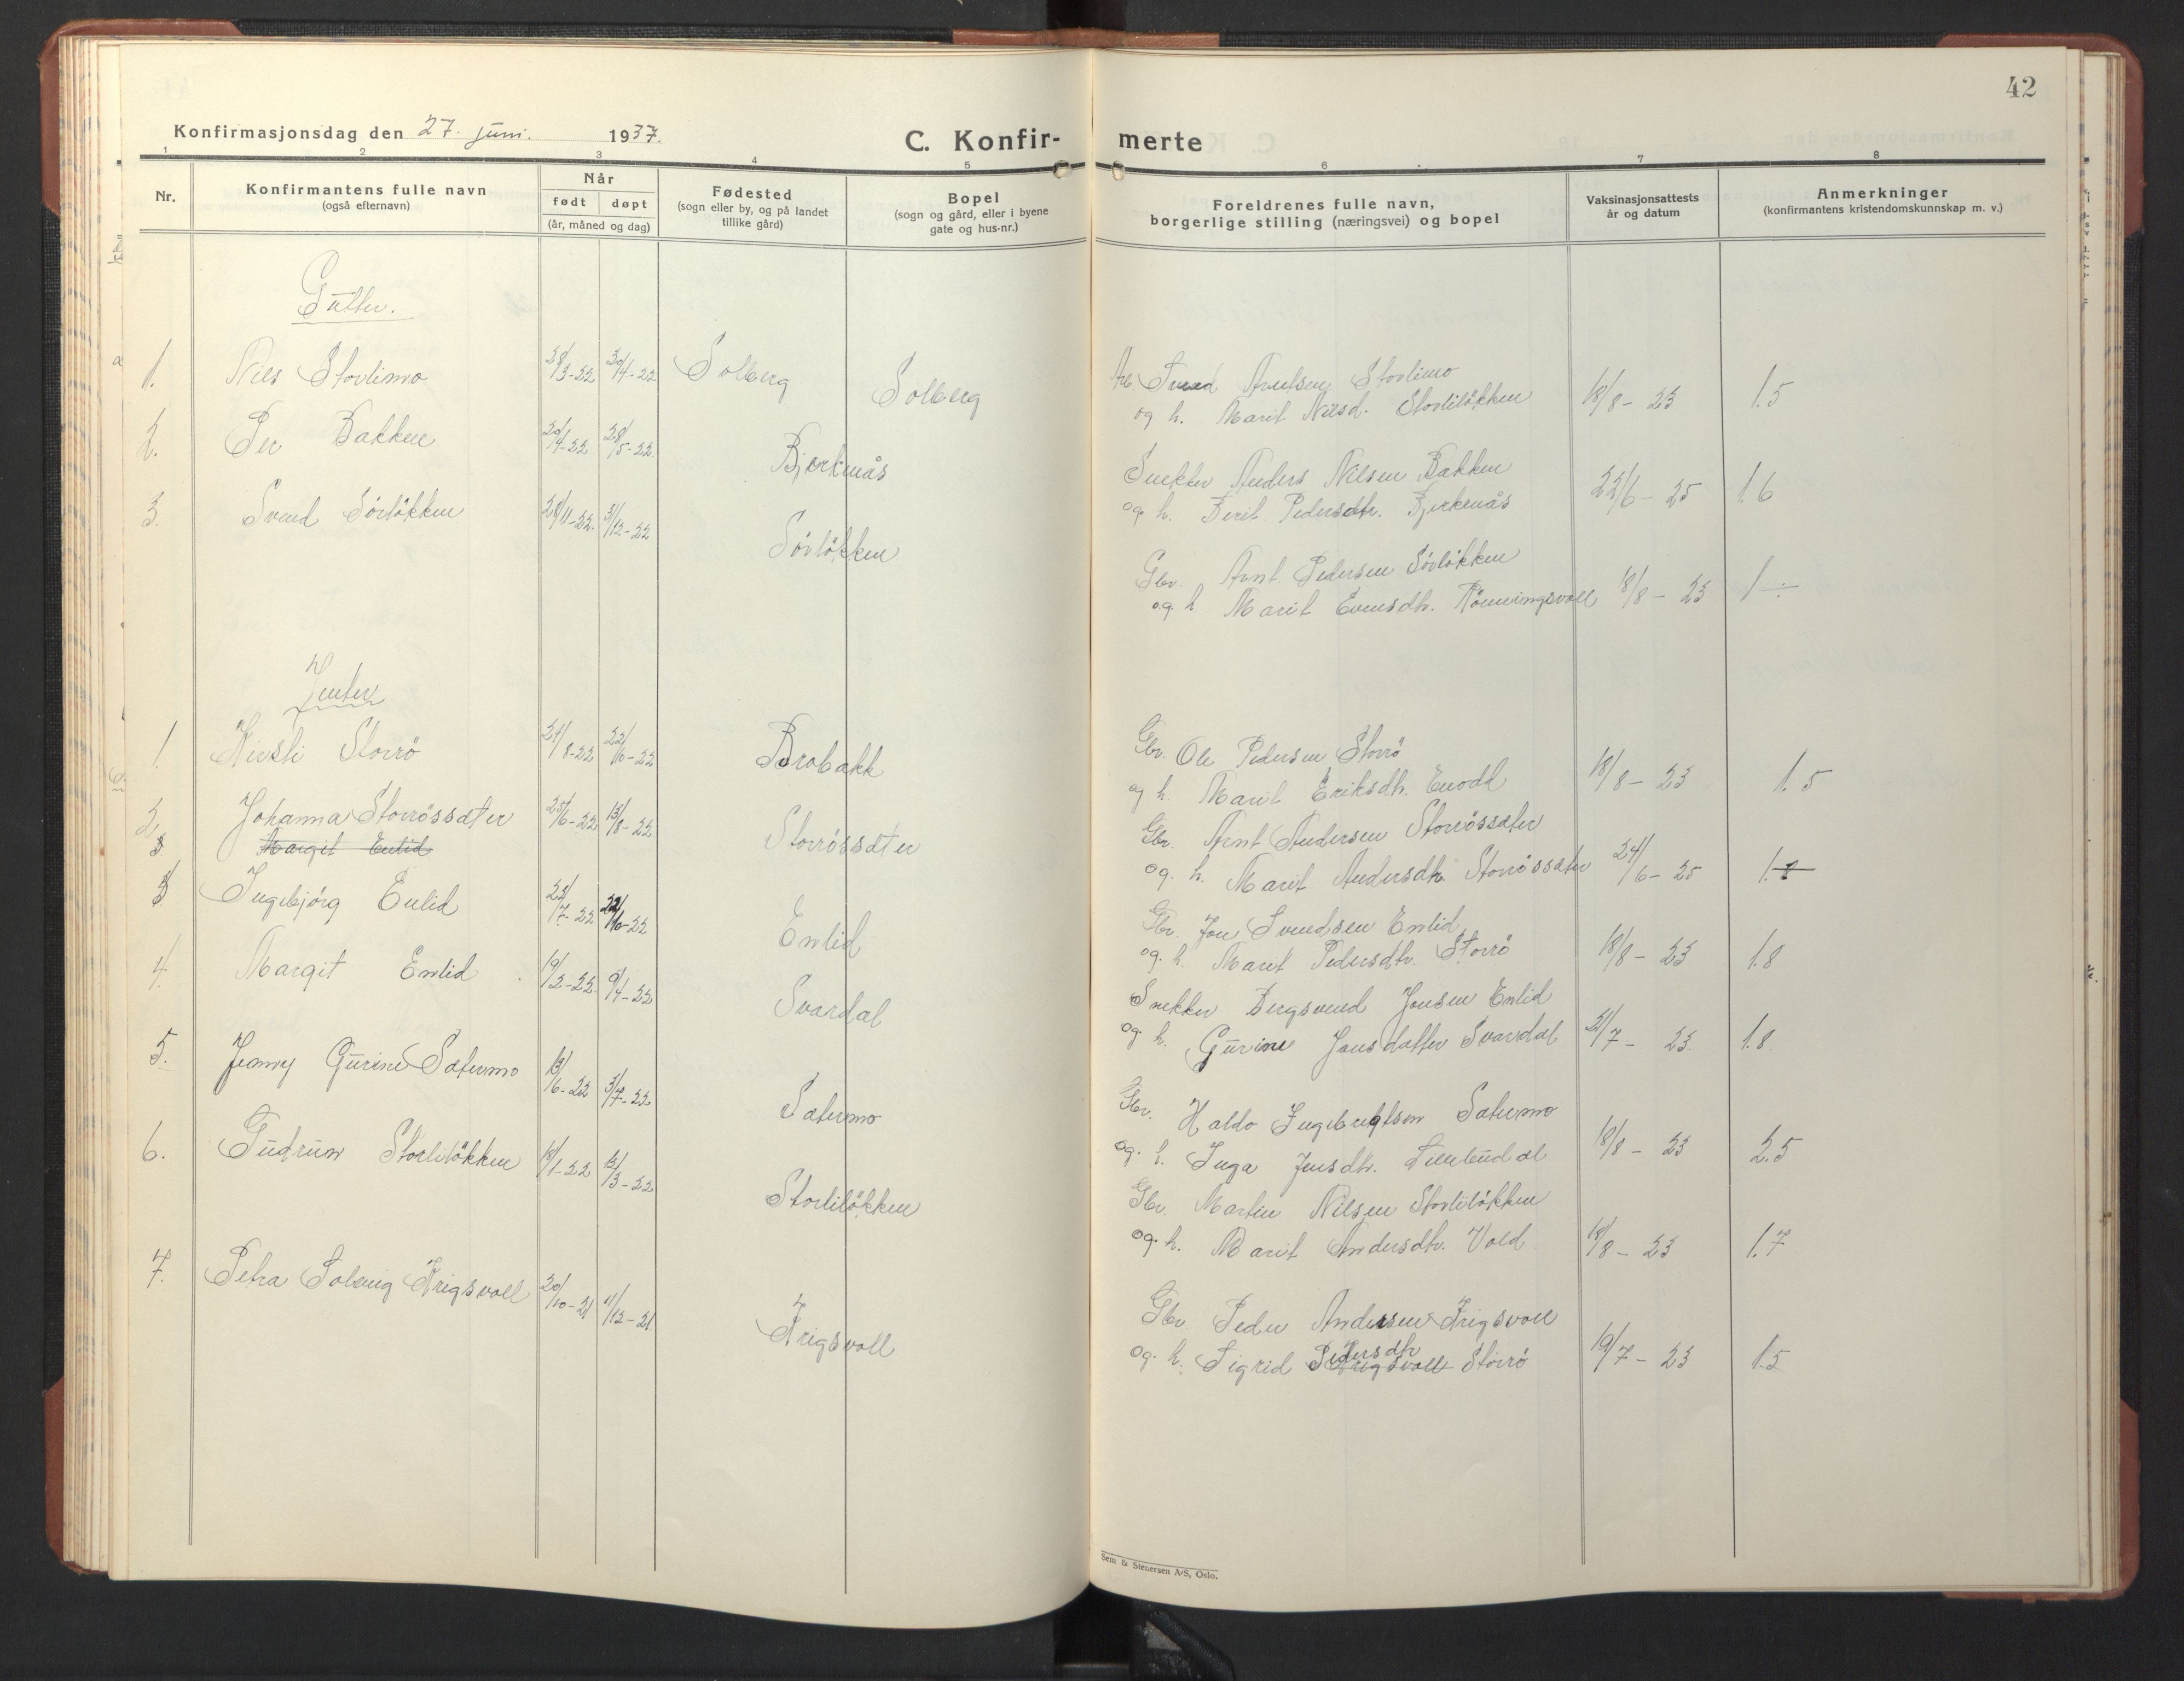 42
Konfirmasjonsdag den 27. juni. 1937.
C. Konfir- merte
1 2 3 4 5 6 7 8
Nr.
Konfirmantens fulle navn
(også efternavn)
Når
født døpt
(år, måned og dag)
Fødested
(sogn eller by, og på landet
tillike gård)
Bopel
(sogn og gård, eller i byene
gate og hus-nr.)
Foreldrenes fulle navn,
borgerlige stilling (næringsvei) og bopel
Vaksinasjonsattests
år og datum
Anmerkninger
(konfirmantens kristendomskunnskap m. v.)
Gutter.
1. Nils Storlimo 28/3-22 30/4-22 Solberg Solberg
Arb. Svend Arntsen Storlimo
og h. Marit Nilsd. Storliløkken 18/8 - 23 1.5
2. Per Bakken 20/4-22 28/5-22 Bjerkenås
Snekker Anders Nilsen Bakken
og h. Berit Pedersdtr. Bjerkenås 22/6 - 25 1.6
3. Svend Sörlökken 28/11-22 31/12-22 Sörlökken
Gbr. Arnt Pedersen Sörlökken
og h Marit Evensdtr. Rönningsvoll 18/8 - 23 1 ÷
Jenter
1. Kirsti Storrö 27/8-22 22/10-22 Brobakk
Gbr. Ole Pedersen Storrö
og h. Marit Eriksdtr. Enodd 18/8 - 23 1.5
2. Johanna Storrössæter 25/6-22 13/8-22 Storrössæter
3 Margit Enlid
Gbr. Arnt Andersen Storrössæter
og. h. Marit Andersdtr. Storrössæter 24/6 - 25 1.8
3 Ingebjörg Enlid 23/7-22 22/10-22 Enlid
Gbr. Jon Svendsen Enlid
og. h. Marit Pedersdtr. Storrö 18/8 - 23 1.8
4. Margit Enlid 19/2-22 9/4-22 Svardal
Snekker Bergsvend Jonsen Enlid
og h. Gurine Jonsdatter Svardal 31/7 - 23. 1.8
5. Jenny Gurine Sætermo 13/6-22 3/7-22 Sætermo
Gbr. Haldo Ingebrigtsen Sætermo
og. h. Inga Jensdtr. Lillebudal 18/8 - 23 2.5
6. Gudrun Storlilökken 18/1-22 13/3-22 Storlilökken
Gbr. Martin Nilsen Storlilökken
og. h. Marit Andersdtr. Vold 18/8 - 23 1.7
7. Petra Solveig Krigsvoll 20/10-21 4/12-21 Krigsvoll
Gbr. Peder Andersen Krigsvoll
og. h. Sigrid Pedersdtr Krigsvoll Storrö 19/7 - 23 1.5
Sem & Stenersen A/S, Oslo.